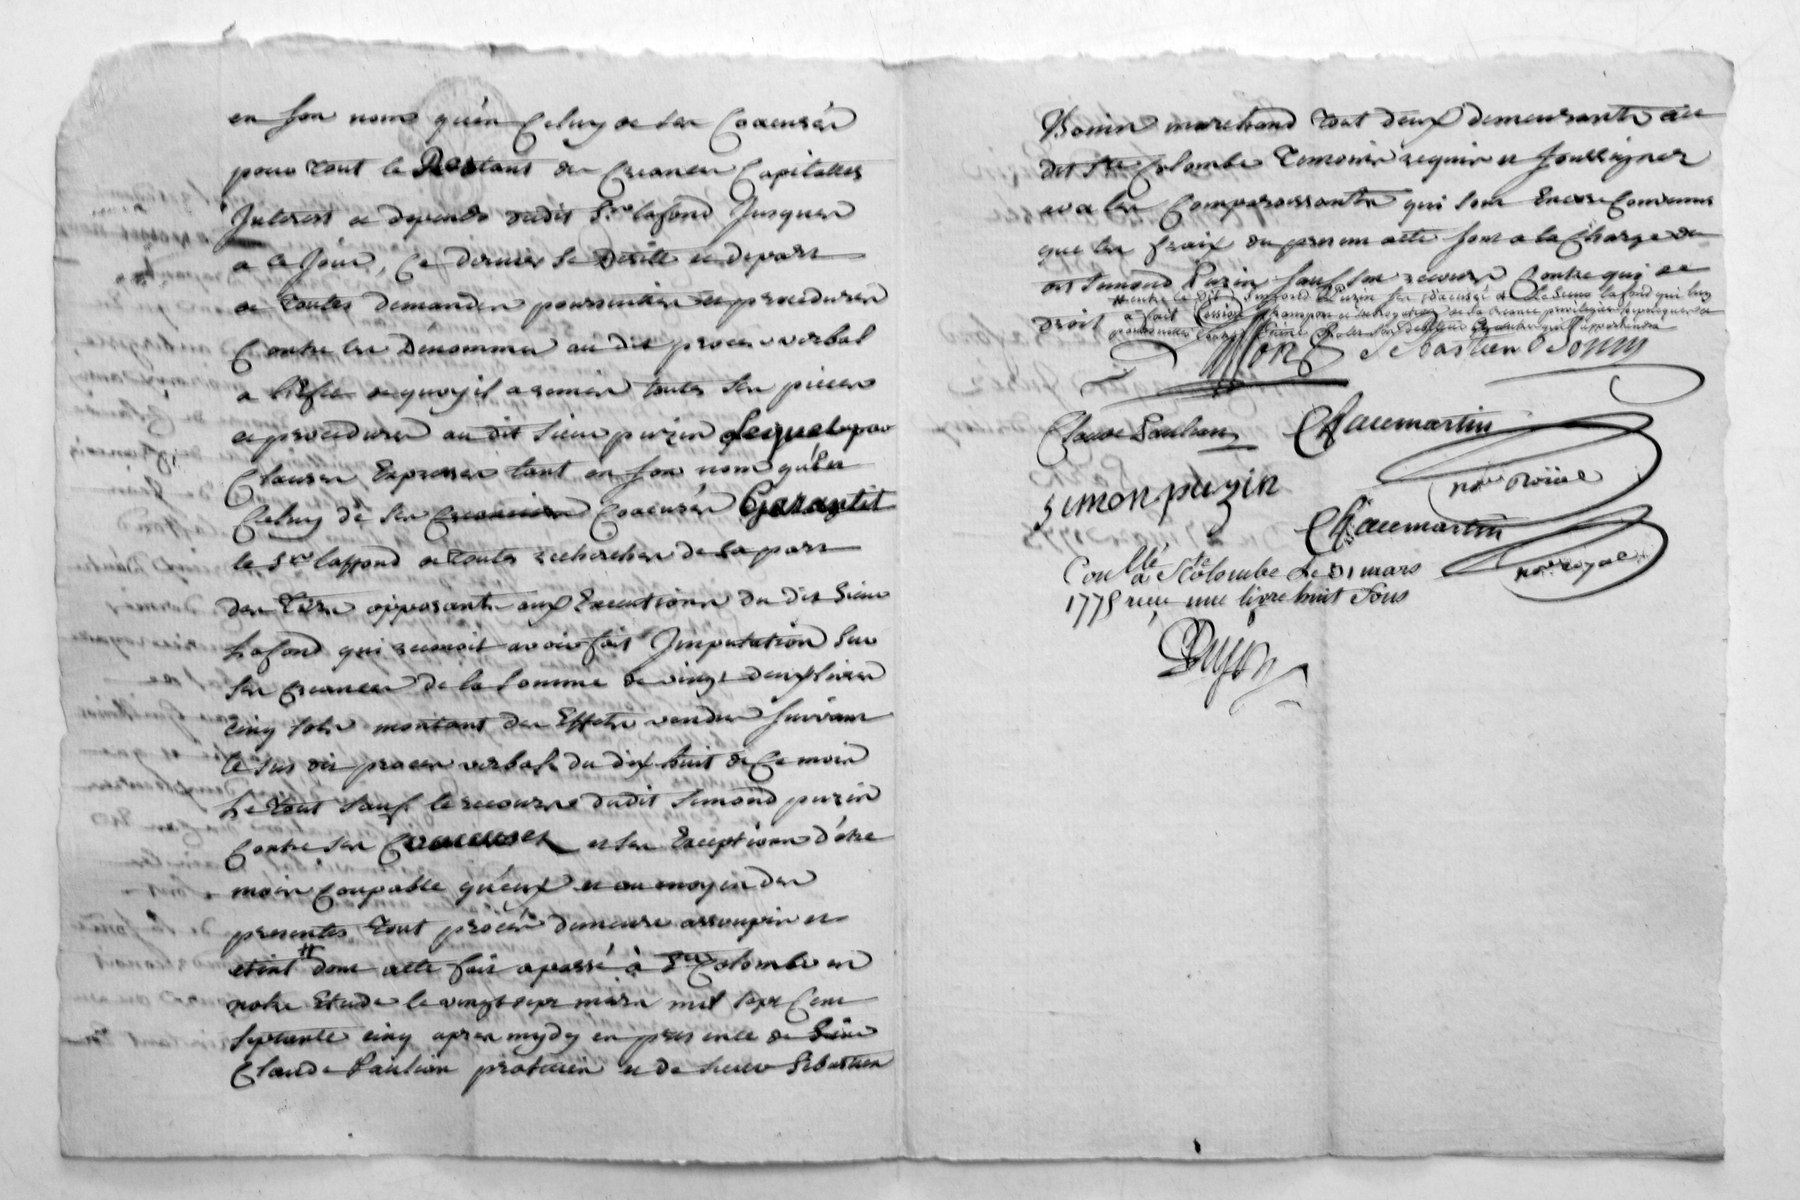 en son nom qu'en Celuy de ses Coacusés
pour tout le Restant des Creances Capitalles
Interest et depends dudit Sr lafond Jusques
a ce Jour, Ce dernier se Desiste et depart
de toutes demandes poursuittes et procedures
Contre les Dénommés au dit procès verbal
a l'effet de quoy il a remis toutes ses pieces
et procedures au dit sieur puzin Lequel par
Clauses Expresses tant en son nom qu'En
Celuy de ses Coacusés Garantit
le Sr laffond de toutes recherches de la part
des opposants aux Executions du dit Sieur
Lafond qui reconoit avoir fait Imputation sur
ses Creances de la Somme de vingt deux livres
cinq sols montant des Effets vendus suivant
le sus dit procès verbal du dix huit de Ce mois
Le tout sauf le recours dudit Simond puzin
Contre ses Coaccusés et ses Exceptions d'être
moins Coupable qu'eux et au moyen des
presentes tout procès demeure assoupis et
eteint # dont acte fait et passé à Ste Colombe en
notre Etude le vingt sept mars mil sept Cent
septante cinq après mydy en presence de
Claude Paulian praticien et de sieur Sébastien
Bonin marchand tout deux demeurants au
dit Ste Colombe temoins requis et soussignés
avec les Comparoissants qui sont Encore Convenus
que les fraix du present acte sont a la Charge du
dit Simond Puzin sauf son recours Contre qui de
droit
# entre le dit Simond Puzin ses coacusés et le sieur lafond qui luy
a fait Cession transport et subrogation de sa creance privilegiée
Sebastien Bonin
Claude Paulian
Chaumartin
nore Roïal
Simon puzin
Chaumartin
nore royal
Conllé a Ste Colombe Le 31 mars
1775 reçu une livre huit Sous